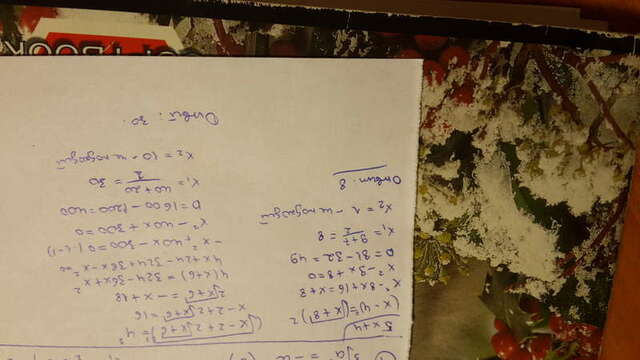 ³√a = -a
5x+4
(x-4)²=(√x+8)²
x²-8x+16=x+8
x²-9x+8=0
D=81-32=49
x₁=9+7/2=8
x₂=1 - не подходит
Ответ: 8
(√x-2+2√x+6)²=4²
x-2+2√x+6=16
2√x+6=-x+18
4(x+6)=324-36x+x²
4x+24-324+36x-x²=0
-x²+40x-300=0 | (-1)
x²-40x+300=0
D=1600-1200=400
x₁=40+20/2=30
x₂=10 - не подходит
Ответ: 30.
TBOOK